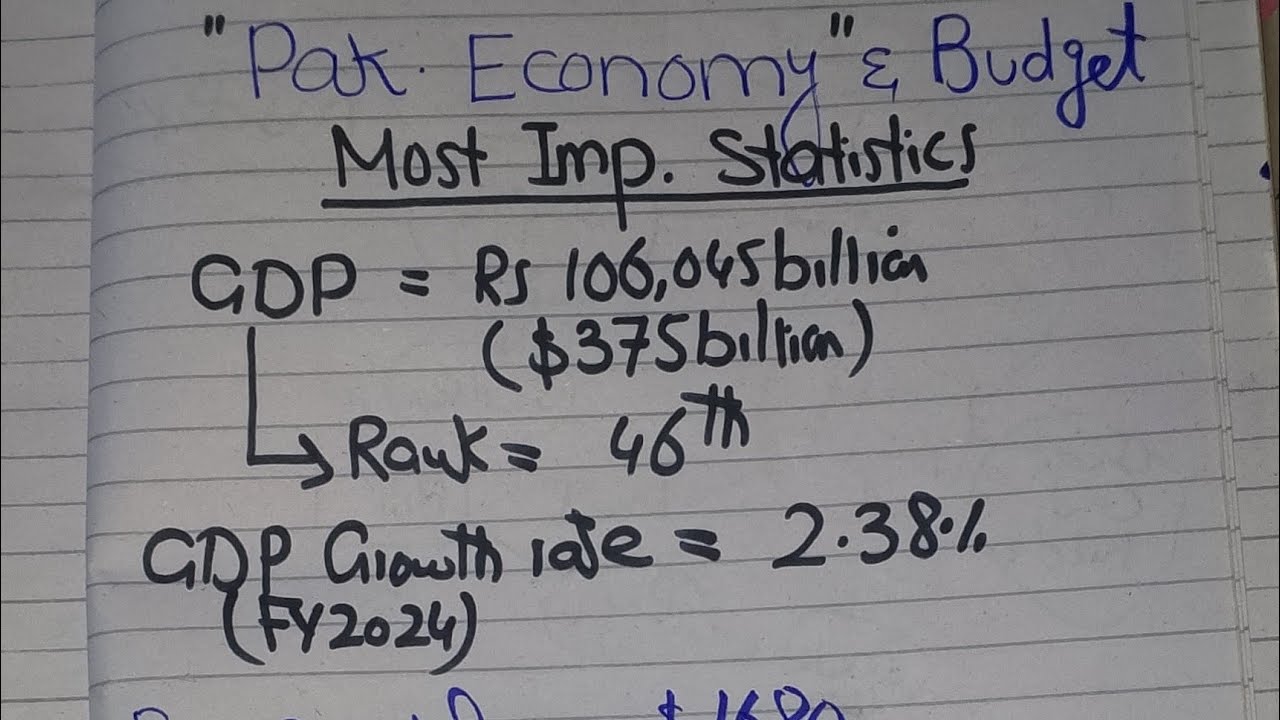 "Pak. Economy" & Budget
Most Imp. Statistics
GDP = Rs 106,045 billion
($375 billion)
Rank = 46th
GDP Growth rate = 2.38%
(FY2024)